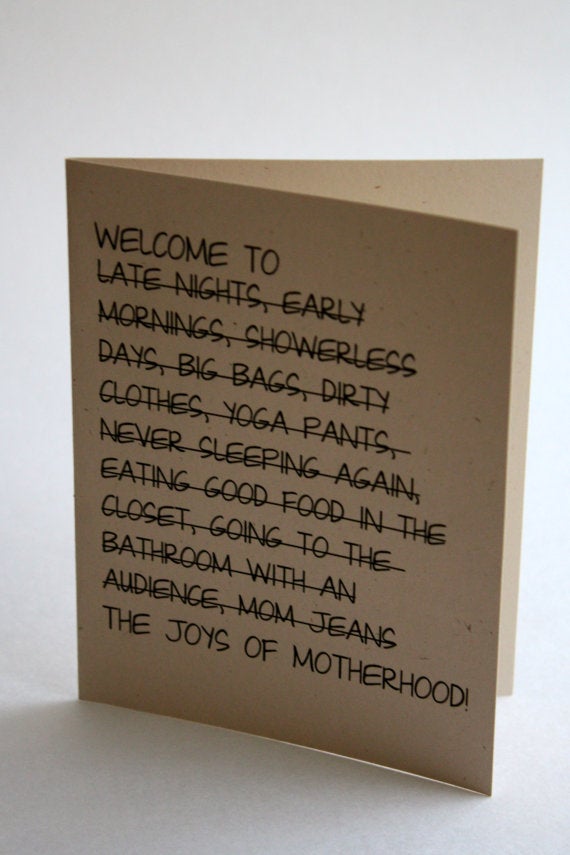 WELCOME TO
LATE NIGHTS, EARLY
MORNINGS, SHOWERLESS
DAYS, BIG BAGS, DIRTY
CLOTHES, YOGA PANTS,
NEVER SLEEPING AGAIN,
EATING GOOD FOOD IN THE
CLOSET, GOING TO THE
BATHROOM WITH AN
AUDIENCE, MOM JEANS
THE JOYS OF MOTHERHOOD!